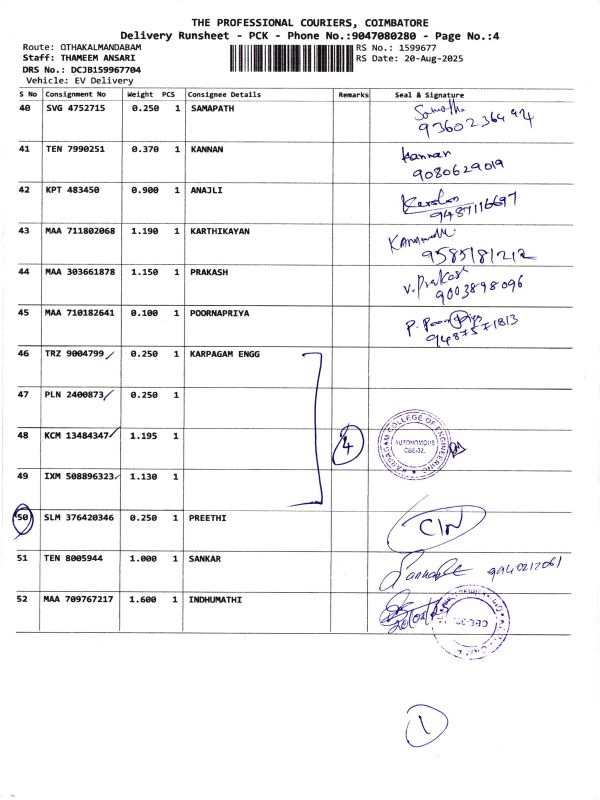 THE PROFESSIONAL COURIERS, COIMBATORE
Delivery Runsheet - PCK - Phone No.:9047080280 - Page No.:4
Route: OTHAKALMANDABAM RS No.: 1599677
Staff: THAMEEM ANSARI RS Date: 20-Aug-2025
DRS No.: DCJB159967704
Vehicle: EV Delivery
S No Consignment No Weight PCS Consignee Details Remarks Seal & Signature
40 SVG 4752715 0.250 1 SAMAPATH
41 TEN 7990251 0.370 1 KANNAN Kannan
9080629019
42 KPT 483450 0.900 1 ANAJLI
9487116697
43 MAA 711802068 1.190 1 KARTHIKAYAN
9585181212
44 MAA 303661878 1.150 1 PRAKASH V. Prakash
9003898096
45 MAA 710182641 0.100 1 POORNAPRIYA
9487571813
46 TRZ 9004799 0.250 1 KARPAGAM ENGG
47 PLN 2400873 0.250 1
48 KCM 13484347 1.195 1 4 KARPAGAM COLLEGE OF ENGINEERING AUTONOMOUS CBE-32.
49 IXM 508896323 1.130 1
50 SLM 376420346 0.250 1 PREETHI CIN
51 TEN 8005944 1.000 1 SANKAR 9940212061
52 MAA 709767217 1.600 1 INDHUMATHI
1